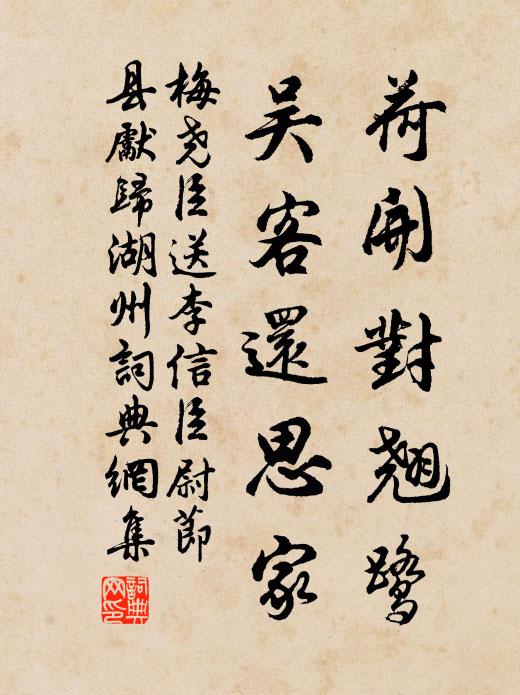 荷開對翹鷺
吴客還思家
梅尧臣送李信臣尉節
县獻歸湖州詞典網集
詞典网印